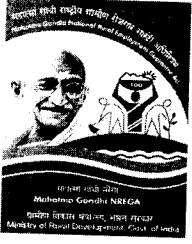 महात्मा गांधी राष्ट्रीय ग्रामीण रोजगार गारंटी अधिनियम
Mahatma Gandhi National Rural Employment Guarantee Act
100
महात्मा गांधी नरेगा
Mahatma Gandhi NREGA
ग्रामीण विकास मंत्रालय, भारत सरकार
Ministry of Rural Development, Govt. of India